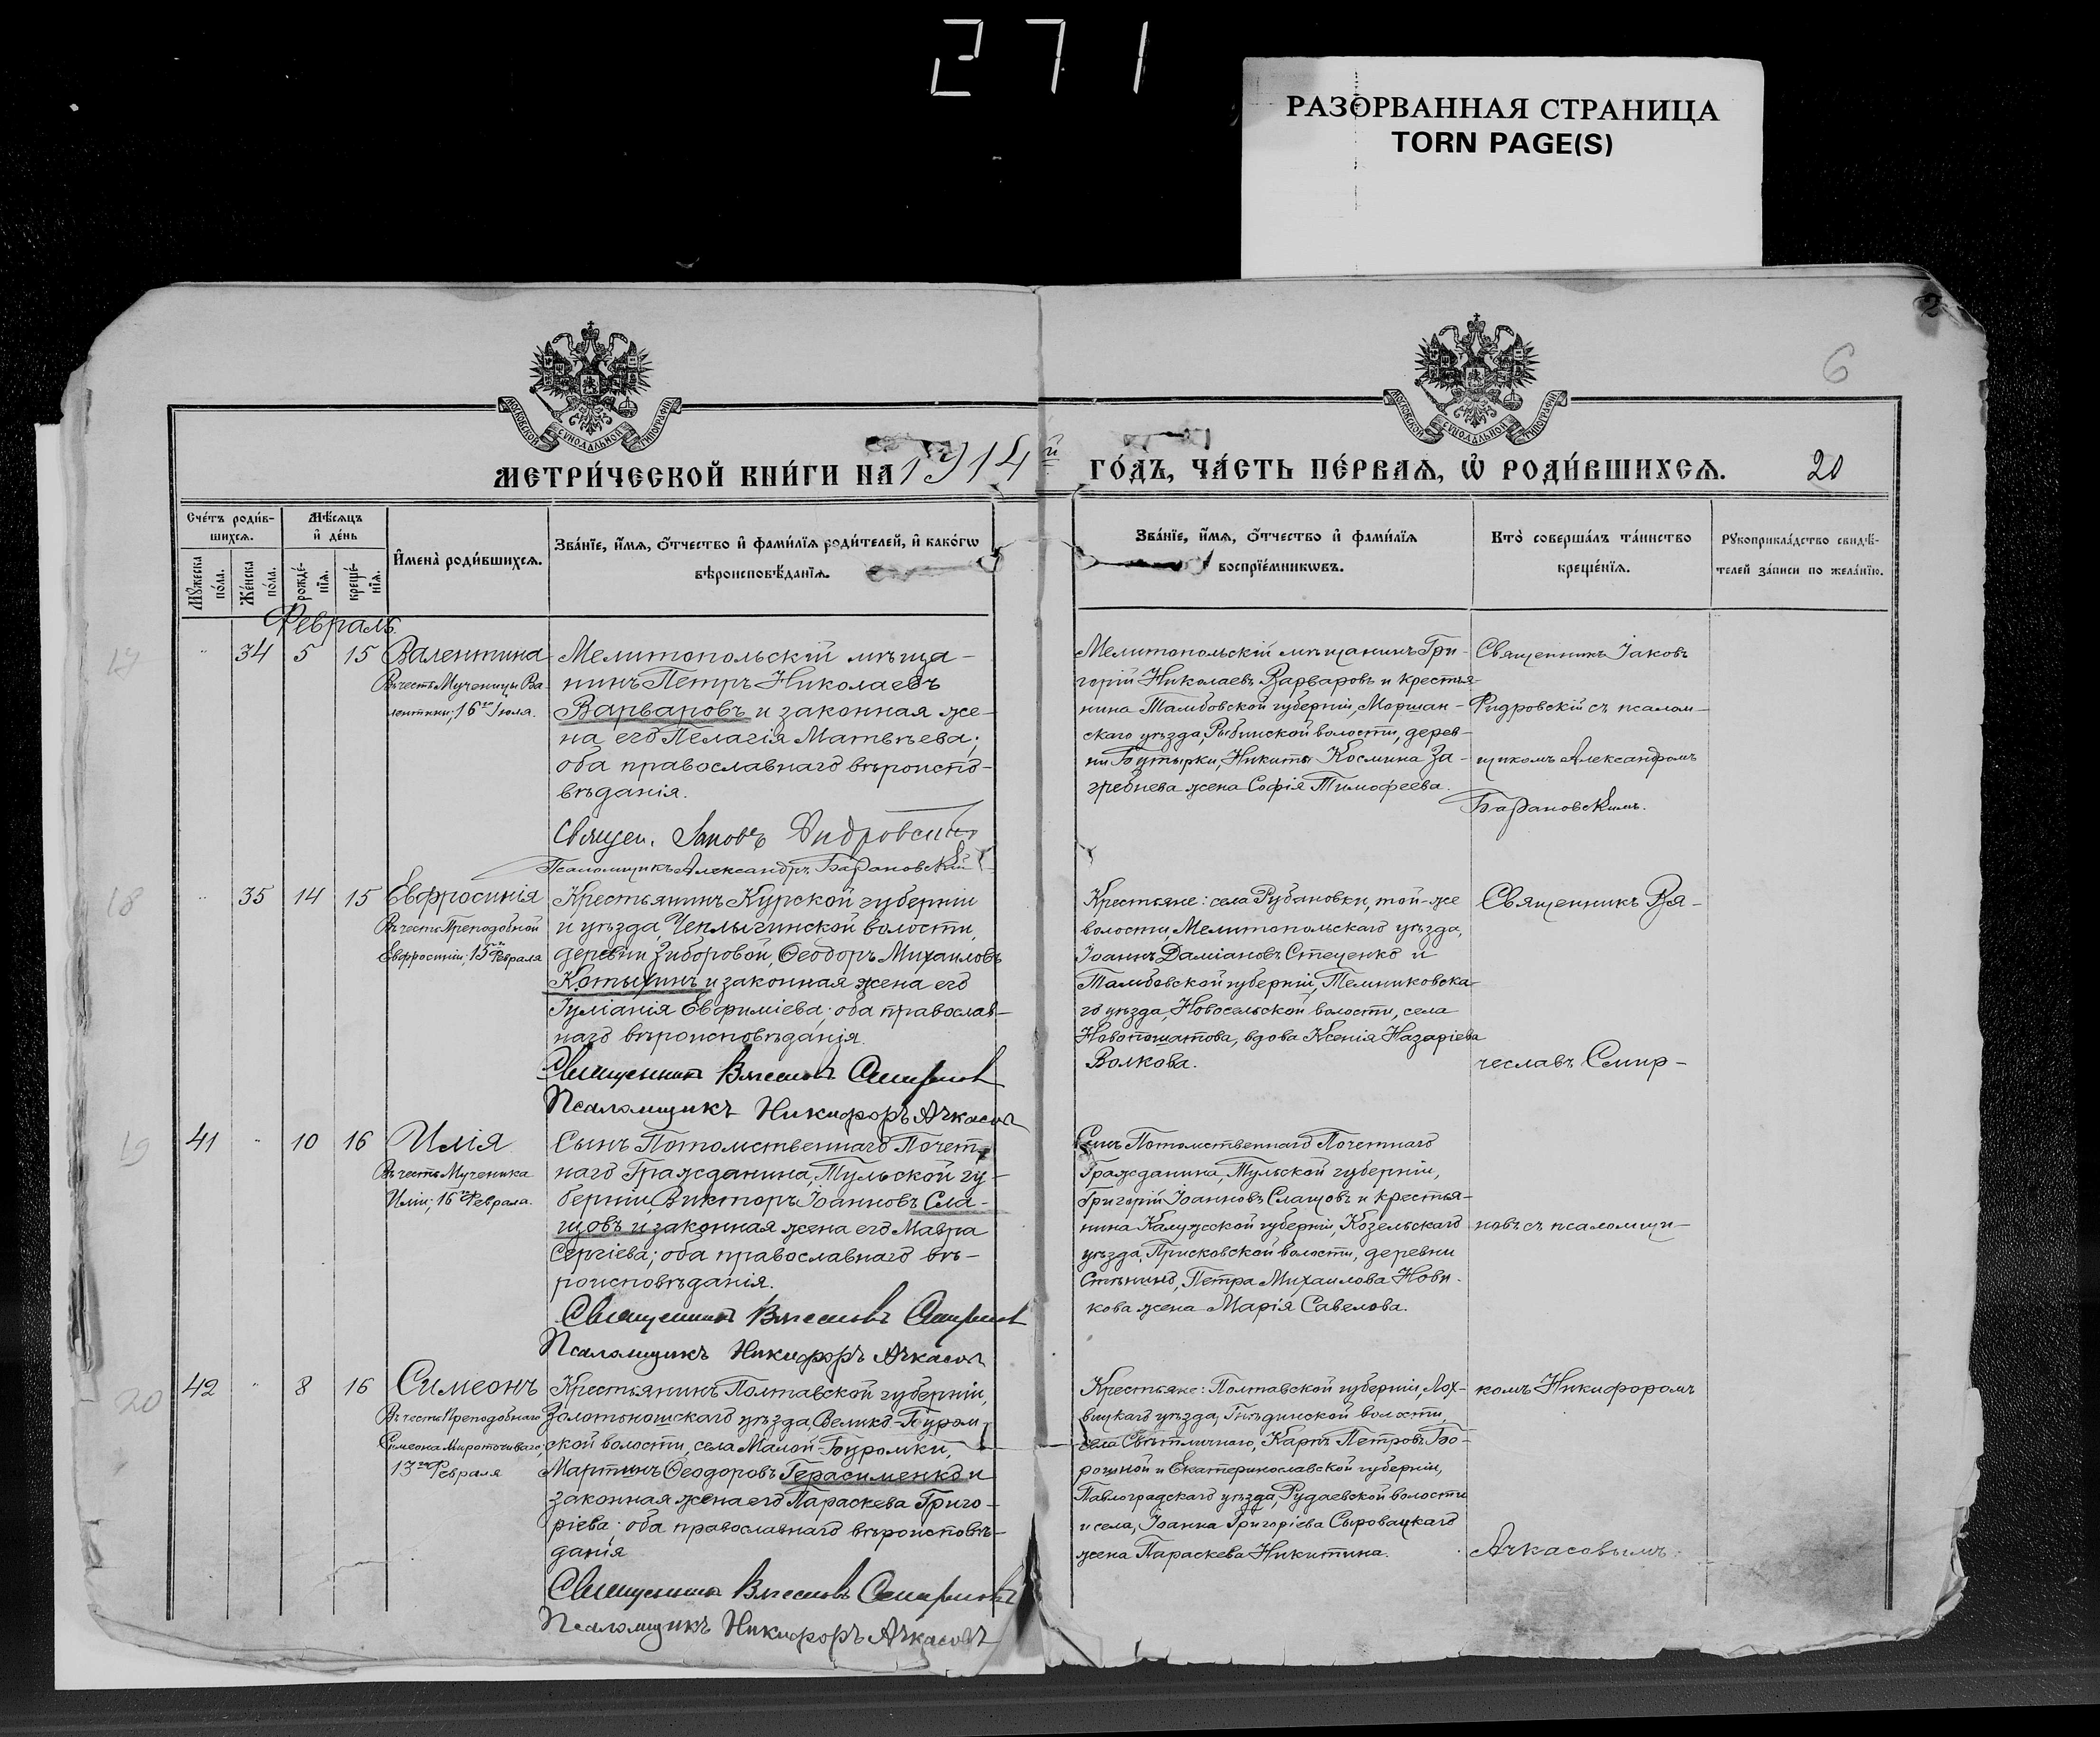 271
РАЗОРВАННАЯ СТРАНИЦА
TORN PAGE(S)
2
6
МОСКОВСКОЙ СѴНОДАЛЬНОЙ ТИПОГРАФІИ
МОСКОВСКОЙ СѴНОДАЛЬНОЙ ТИПОГРАФІИ
МЕТРИ́ЧЕСКОЙ КНИ́ГИ НА 1914й ГО́ДЪ, ЧА́СТЬ ПЕ́РВАѦ, Ѽ РОДИ́ВШИХСѦ. 20
Сче́тъ роди́в-
шихсѧ.
Мꙋжеска по́ла.
Же́нска по́ла.
Мѣ́сѧцъ
и҆ де́нь
рожде́-
нїѧ.
креще́-
нїѧ.
И҆мена̀ роди́вшихсѧ.
Зва́нїе, и҆́мѧ, ѻ҆́тчество и҆ фами́лїѧ роди́телей, и҆ како́гѡ
вѣроисповѣ́данїѧ.
Зва́нїе, и҆́мѧ, ѻ҆́тчество и҆ фами́лїѧ
воспрїе́мникѡвъ.
Кто̀ соверша́лъ та́инство
креще́нїѧ.
Рꙋкоприкла́дство свидѣ́-
телей за́писи по жела́нїю.
Февраль.
17
34 5 15
Валентина
Въ честь Мученицы Ва-
лентины; 16го Іюля.
Мелитопольскій мѣща-
нинъ Петръ Николаевъ
Варваровъ и законная же-
на его Пелагія Матвѣева;
оба православнаго вѣроиспо-
вѣданія.
Священ. Іаковъ
Псаломщикъ Александръ Барановскій
Мелитопольскій мѣщанинъ Гри-
горій Николаевъ Варваровъ и крестья-
нина Тамбовской губерніи, Моршан-
скаго уѣзда, Рыбинской волости, дерев-
ни Бутырки, Никиты Космина За-
гребнева жена Софія Тимофеева.
Священникъ Іаковъ
съ псалом-
щикомъ Александромъ
Барановскимъ.
18
35 14 15
Евфросинія
Въ честь Преподобной
Евфросиніи; 15го Февраля
Крестьянинъ Курской губерніи
и уѣзда, Чеплыгинской волости,
деревни Зиборовой, Ѳеодоръ Михаиловъ
Котыхинъ и законная жена его
Іуліанія Евфиміева; оба православ-
наго вѣроисповѣданія.
Священникъ Вячеславъ Смирновъ
Псаломщикъ Никифоръ Ачкасовъ
Крестьяне: села Рубановки, той-же
волости, Мелитопольскаго уѣзда,
Іоаннъ Даміановъ Стеценко и
Тамбовской губерніи, Темниковска-
го уѣзда, Новосельской волости, села
вдова Ксенія Назаріева
Волкова.
Священникъ Вя-
чеславъ Смир-
19
41 10 16
Илія
Въ честь Мученика
Иліи; 16го Февраля.
Сынъ Потомственнаго Почет-
наго Гражданина, Тульской гу-
берніи, Викторъ Іоанновъ Сла-
щовъ и законная жена его Мавра
Сергіева; оба православнаго вѣ-
роисповѣданія.
Священникъ Вячеславъ Смирновъ
Псаломщикъ Никифоръ Ачкасовъ
Сынъ Потомственнаго Почетнаго
Гражданина, Тульской губерніи,
Григорій Іоанновъ Слащовъ и крестья-
нина Калужской губерніи, Козельскаго
уѣзда, Присковской волости, деревни
Стѣнино, Петра Михаилова Нови-
кова жена Марія Савелова.
новъ съ псаломщи-
20
42 8 16
Симеонъ
Въ честь Преподобнаго
Симеона Мироточиваго;
13го Февраля
Крестьянинъ Полтавской губерніи,
Золотоношскаго уѣзда, Велико-Буром-
ской волости, села Малой-Буромки,
Мартинъ Ѳеодоровъ Герасименко и
законная жена его Параскева Григо-
ріева; оба православнаго вѣроисповѣ-
данія
Священникъ Вячеславъ Смирновъ
Псаломщикъ Никифоръ Ачкасовъ
Крестьяне: Полтавской губерніи, Лох-
вицкаго уѣзда, волости,
села Свѣтличнаго, Карпъ Петровъ Бо-
рошной и Екатеринославской губерніи,
Павлоградскаго уѣзда, Рудаевской волости
и села, Іоанна Григоріева Сыровацкаго
жена Параскева Никитина.
комъ Никифоромъ
Ачкасовымъ.